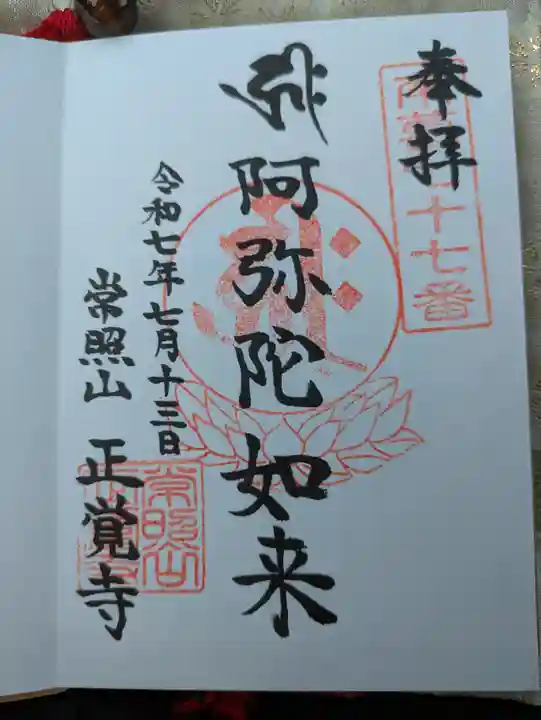 奉拝
十七番
阿弥陀如来
令和七年七月十三日
常照山 正覚寺
常照山